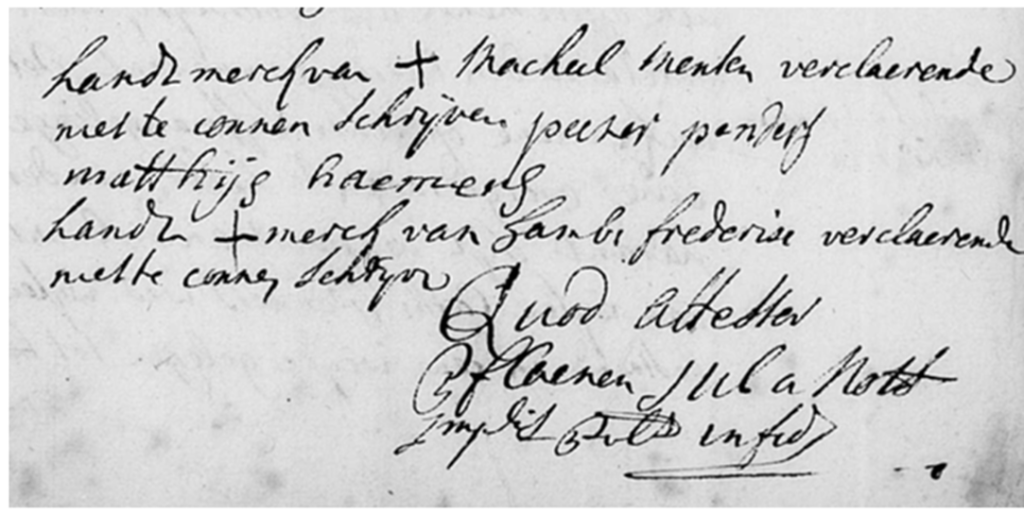 handt merck van + Macheel Menten verclaerende
niet te connen schrijven peeter
matthijs haemens
handt + merck van Jambe frederix verclaerende
niet te connen schrijven
Quod attestor
in fid